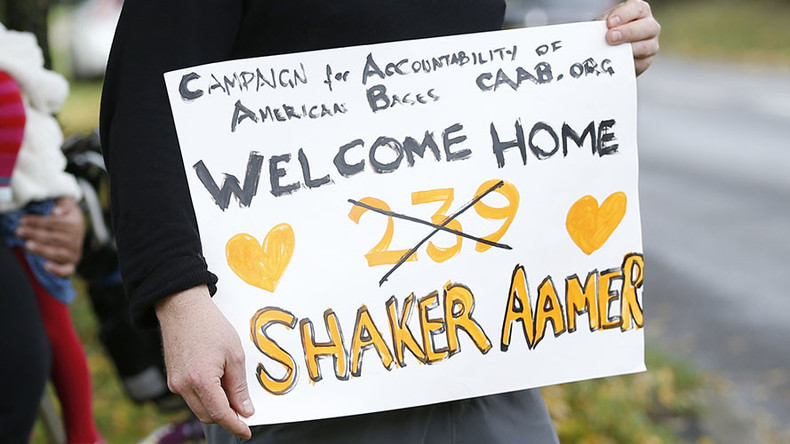 CAMPAIGN for ACCOUNTABILITY OF
AMERICAN BASES CAAB.ORG
WELCOME HOME
239
SHAKER AAMER